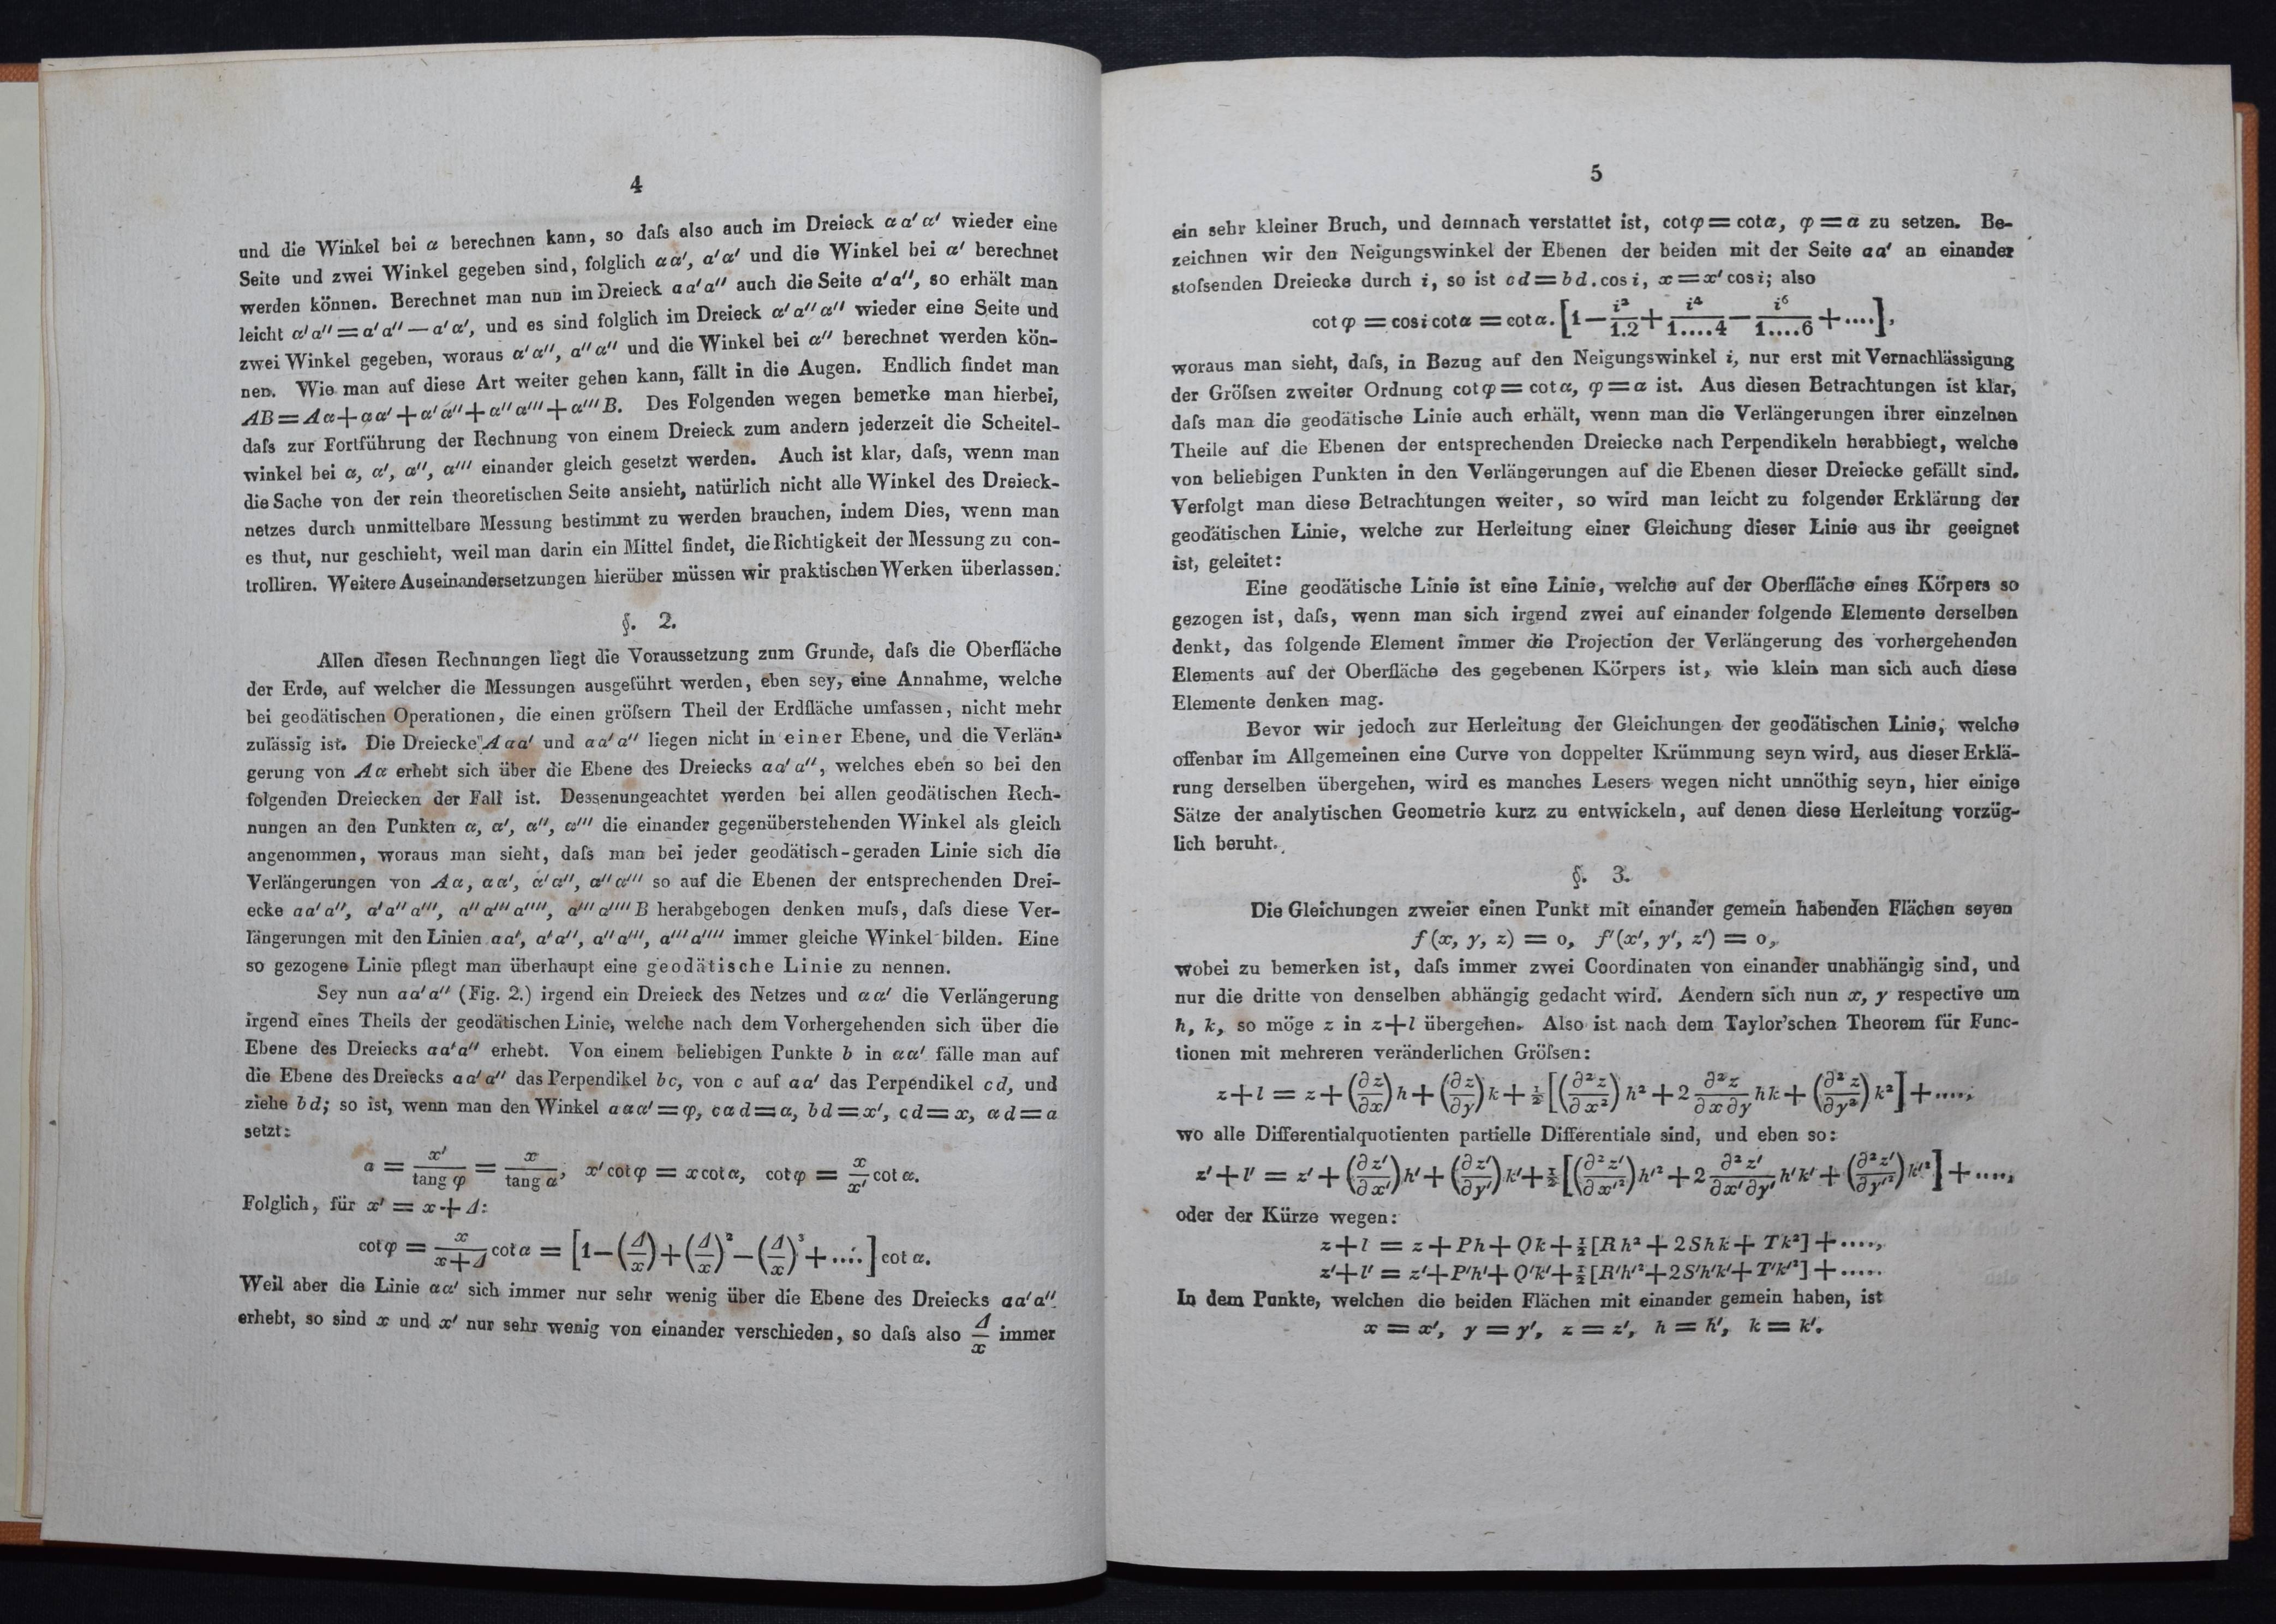 4
und die Winkel bei α berechnen kann, so daſs also auch im Dreieck αa'α' wieder eine
Seite und zwei Winkel gegeben sind, folglich αα', a'α' und die Winkel bei α' berechnet
werden können. Berechnet man nun im Dreieck aa'a'' auch die Seite a'a'', so erhält man
leicht α'a'' = a'a'' — a'α', und es sind folglich im Dreieck α'a''α'' wieder eine Seite und
zwei Winkel gegeben, woraus α'α'', a''α'' und die Winkel bei α'' berechnet werden kön-
nen. Wie man auf diese Art weiter gehen kann, fällt in die Augen. Endlich findet man
AB = Aα + αα' + α'α'' + α''α''' + α'''B. Des Folgenden wegen bemerke man hierbei,
daſs zur Fortführung der Rechnung von einem Dreieck zum andern jederzeit die Scheitel-
winkel bei α, α', α'', α''' einander gleich gesetzt werden. Auch ist klar, daſs, wenn man
die Sache von der rein theoretischen Seite ansieht, natürlich nicht alle Winkel des Dreieck-
netzes durch unmittelbare Messung bestimmt zu werden brauchen, indem Dies, wenn man
es thut, nur geschieht, weil man darin ein Mittel findet, die Richtigkeit der Messung zu con-
trolliren. Weitere Auseinandersetzungen hierüber müssen wir praktischen Werken überlassen.
§. 2.
Allen diesen Rechnungen liegt die Voraussetzung zum Grunde, daſs die Oberfläche
der Erde, auf welcher die Messungen ausgeführt werden, eben sey, eine Annahme, welche
bei geodätischen Operationen, die einen gröſsern Theil der Erdfläche umfassen, nicht mehr
zulässig ist. Die Dreiecke Aaa' und aa'a'' liegen nicht in einer Ebene, und die Verlän-
gerung von Aα erhebt sich über die Ebene des Dreiecks aa'a'', welches eben so bei den
folgenden Dreiecken der Fall ist. Dessenungeachtet werden bei allen geodätischen Rech-
nungen an den Punkten α, α', α'', α''' die einander gegenüberstehenden Winkel als gleich
angenommen, woraus man sieht, daſs man bei jeder geodätisch-geraden Linie sich die
Verlängerungen von Aα, αα', α'α'', α''α''' so auf die Ebenen der entsprechenden Drei-
ecke aa'a'', a'a''a''', a''a'''a'''', a'''a''''B herabgebogen denken muſs, daſs diese Ver-
längerungen mit den Linien aa', a'a'', a''a''', a'''a'''' immer gleiche Winkel bilden. Eine
so gezogene Linie pflegt man überhaupt eine geodätische Linie zu nennen.
Sey nun aa'a'' (Fig. 2.) irgend ein Dreieck des Netzes und αα' die Verlängerung
irgend eines Theils der geodätischen Linie, welche nach dem Vorhergehenden sich über die
Ebene des Dreiecks aa'a'' erhebt. Von einem beliebigen Punkte b in αα' fälle man auf
die Ebene des Dreiecks aa'a'' das Perpendikel bc, von c auf aa' das Perpendikel cd, und
ziehe bd; so ist, wenn man den Winkel aαα' = φ, cαd = α, bd = x', cd = x, αd = a
setzt:
a = x'/tang φ = x/tang α, x' cot φ = x cot α, cot φ = x/x' cot α.
Folglich, für x' = x + Δ:
cot φ = x/(x+Δ) cot α = [1 — (Δ/x) + (Δ/x)² — (Δ/x)³ + ....] cot α.
Weil aber die Linie αα' sich immer nur sehr wenig über die Ebene des Dreiecks aa'a''
erhebt, so sind x und x' nur sehr wenig von einander verschieden, so daſs also Δ/x immer
5
ein sehr kleiner Bruch, und demnach verstattet ist, cot φ = cot α, φ = α zu setzen. Be-
zeichnen wir den Neigungswinkel der Ebenen der beiden mit der Seite aa' an einander
stoſsenden Dreiecke durch i, so ist cd = bd . cos i, x = x' cos i; also
cot φ = cos i cot α = cot α. [1 — i²/1.2 + i⁴/1....4 — i⁶/1....6 + ....],
woraus man sieht, daſs, in Bezug auf den Neigungswinkel i, nur erst mit Vernachlässigung
der Gröſsen zweiter Ordnung cot φ = cot α, φ = α ist. Aus diesen Betrachtungen ist klar,
daſs man die geodätische Linie auch erhält, wenn man die Verlängerungen ihrer einzelnen
Theile auf die Ebenen der entsprechenden Dreiecke nach Perpendikeln herabbiegt, welche
von beliebigen Punkten in den Verlängerungen auf die Ebenen dieser Dreiecke gefällt sind.
Verfolgt man diese Betrachtungen weiter, so wird man leicht zu folgender Erklärung der
geodätischen Linie, welche zur Herleitung einer Gleichung dieser Linie aus ihr geeignet
ist, geleitet:
Eine geodätische Linie ist eine Linie, welche auf der Oberfläche eines Körpers so
gezogen ist, daſs, wenn man sich irgend zwei auf einander folgende Elemente derselben
denkt, das folgende Element immer die Projection der Verlängerung des vorhergehenden
Elements auf der Oberfläche des gegebenen Körpers ist, wie klein man sich auch diese
Elemente denken mag.
Bevor wir jedoch zur Herleitung der Gleichungen der geodätischen Linie, welche
offenbar im Allgemeinen eine Curve von doppelter Krümmung seyn wird, aus dieser Erklä-
rung derselben übergehen, wird es manches Lesers wegen nicht unnöthig seyn, hier einige
Sätze der analytischen Geometrie kurz zu entwickeln, auf denen diese Herleitung vorzüg-
lich beruht.
§. 3.
Die Gleichungen zweier einen Punkt mit einander gemein habenden Flächen seyen
f(x, y, z) = o, f'(x', y', z') = o,
wobei zu bemerken ist, daſs immer zwei Coordinaten von einander unabhängig sind, und
nur die dritte von denselben abhängig gedacht wird. Aendern sich nun x, y respective um
h, k, so möge z in z+l übergehen. Also ist nach dem Taylor'schen Theorem für Func-
tionen mit mehreren veränderlichen Gröſsen:
z+l = z + (∂z/∂x) h + (∂z/∂y) k + ½ [(∂²z/∂x²) h² + 2 ∂²z/∂x∂y hk + (∂²z/∂y²) k²] + ....,
wo alle Differentialquotienten partielle Differentiale sind, und eben so:
z'+l' = z' + (∂z'/∂x') h' + (∂z'/∂y') k' + ½ [(∂²z'/∂x'²) h'² + 2 ∂²z'/∂x'∂y' h'k' + (∂²z'/∂y'²) k'²] + ....,
oder der Kürze wegen:
z+l = z + Ph + Qk + ½ [Rh² + 2Shk + Tk²] + ....,
z'+l' = z' + P'h' + Q'k' + ½ [R'h'² + 2S'h'k' + T'k'²] + .....
In dem Punkte, welchen die beiden Flächen mit einander gemein haben, ist
x = x', y = y', z = z', h = h', k = k'.